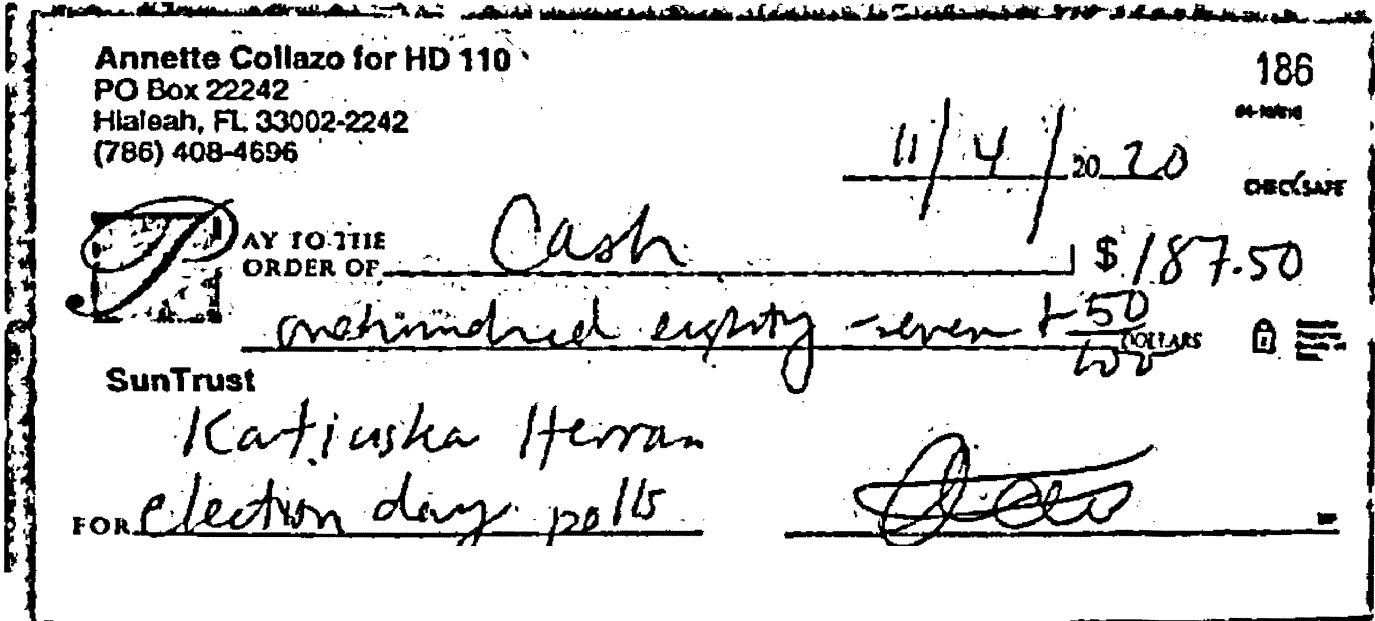 Annette Collazo for HD 110
PO Box 22242
Hialeah, FL 33002-2242
(786) 408-4696
186
11/4/2020
CHECKSAFE
PAY TO THE
ORDER OF Cash $187.50
onehundred eighty-seven + 50/100 DOLLARS
SunTrust
Katiuska Herran
FOR election day polls